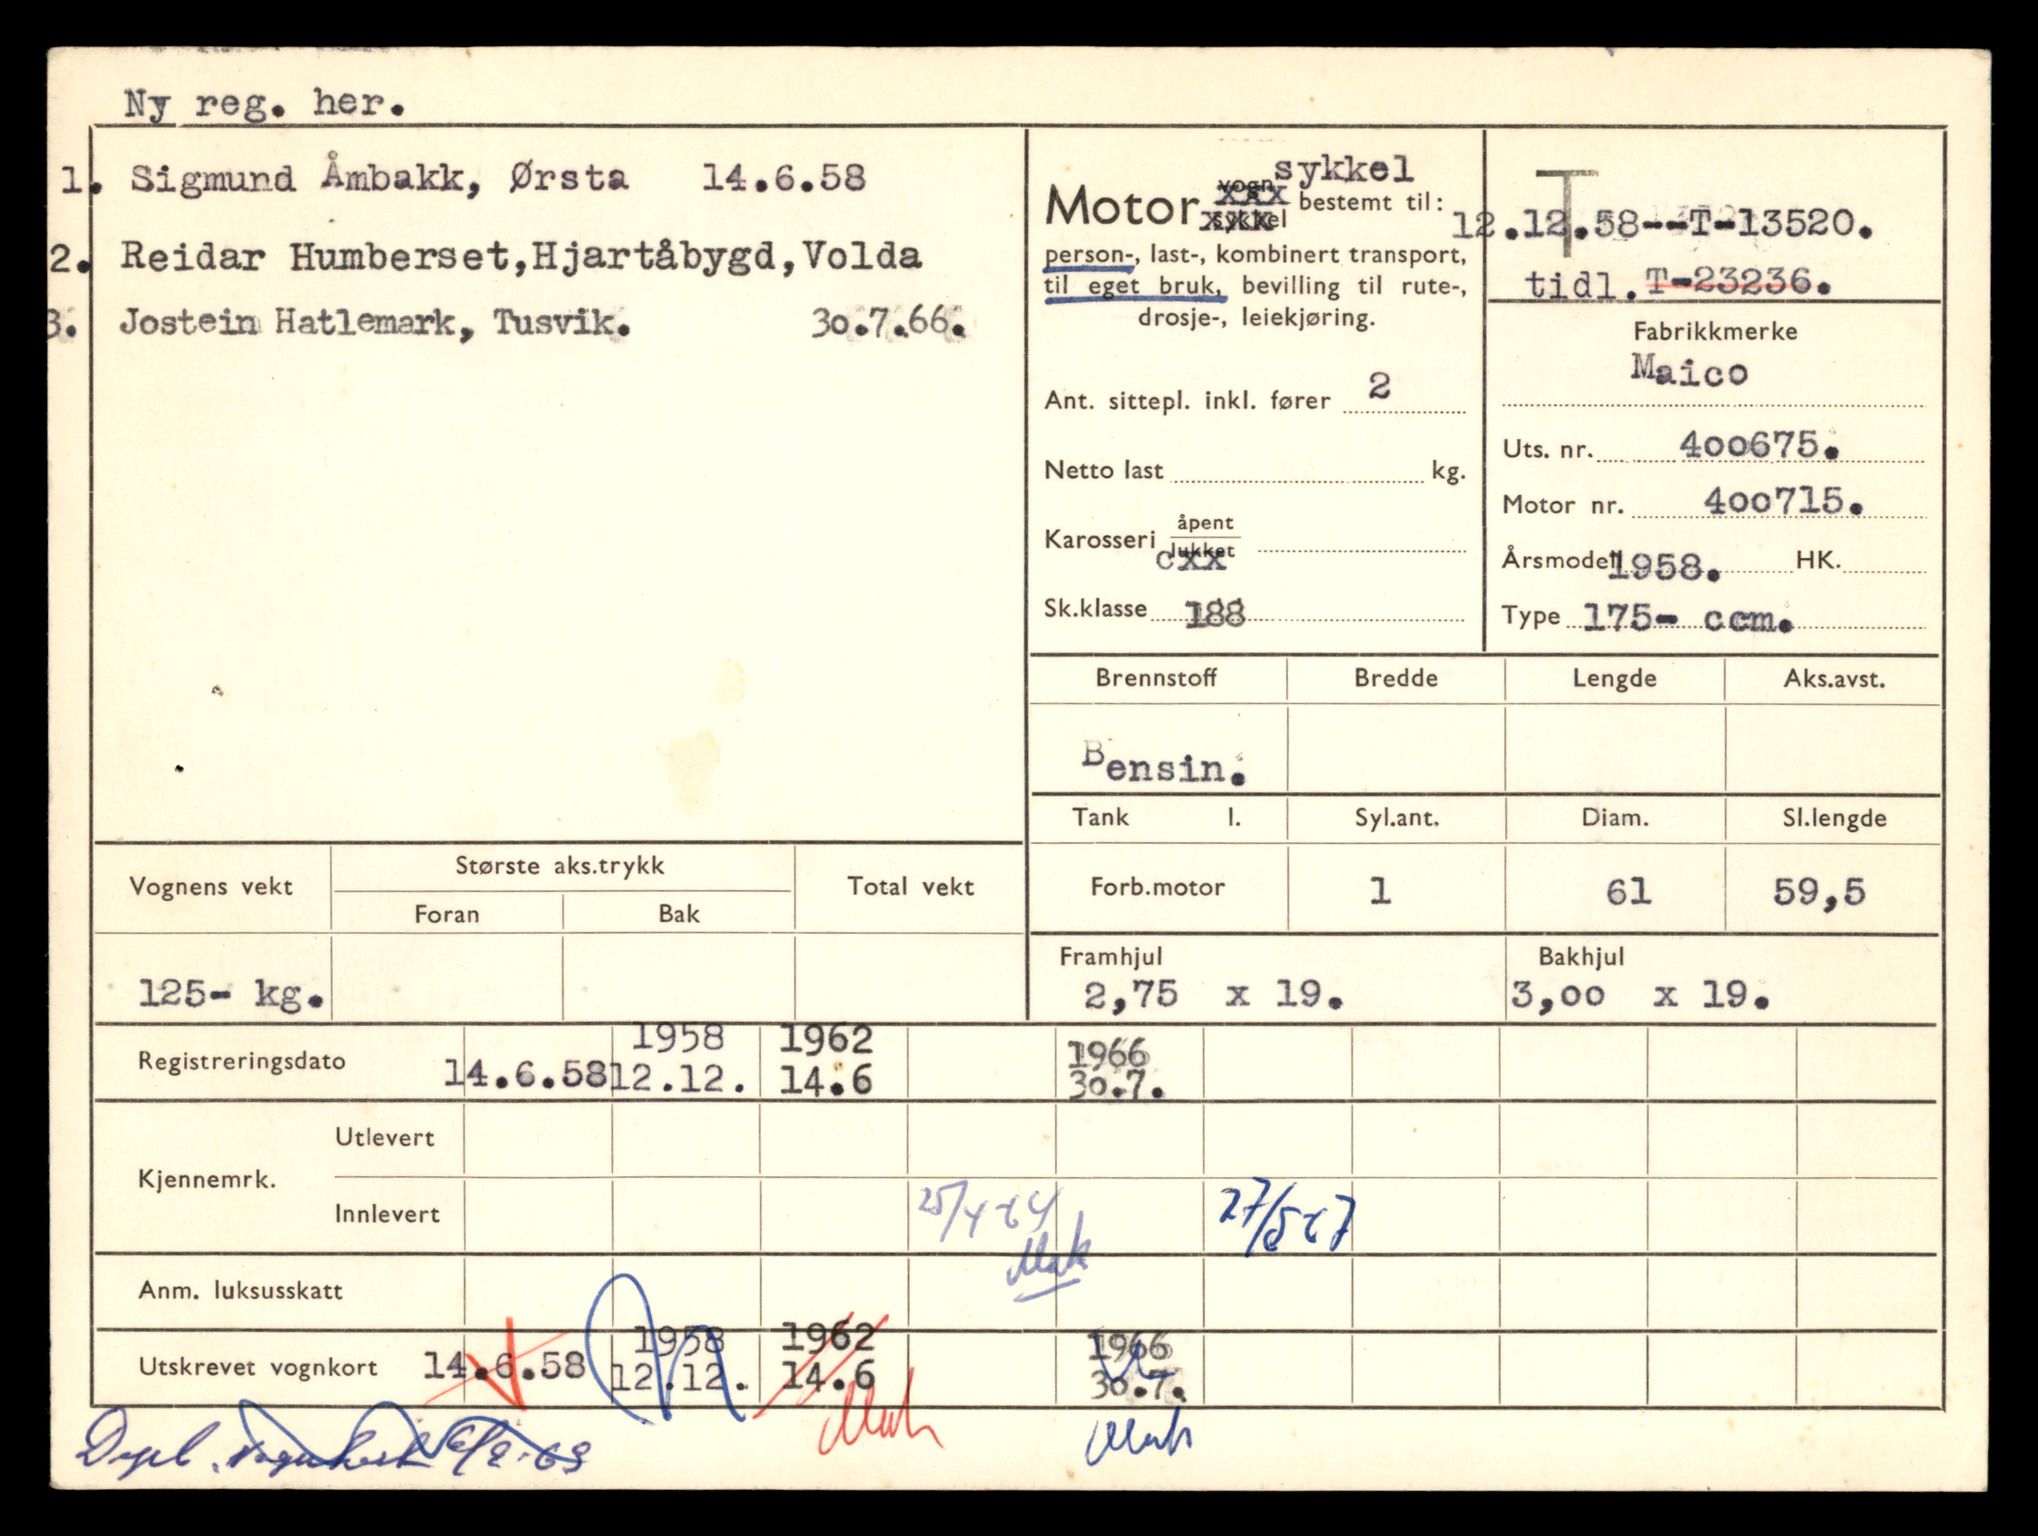 Ny reg. her.
1. Sigmund Åmbakk, Ørsta 14.6.58
2. Reidar Humberset, Hjartåbygd, Volda
3. Jostein Hatlemark, Tusvik. 30.7.66.
Motor vogn sykkel sykkel bestemt til:
person-, last-, kombinert transport,
til eget bruk, bevilling til rute-,
drosje-, leiekjøring.
Ant. sittepl. inkl. fører 2
Netto last kg.
Karosseri åpent
lukket
cxx
Sk.klasse 188
T
12.12.58--T-13520.
tidl. T-23236.
Fabrikkmerke
Maico
Uts. nr. 400675.
Motor nr. 400715.
Årsmodell 1958. HK.
Type 175- ccm.
Brennstoff Bredde Lengde Aks.avst.
Bensin.
Tank l. Syl.ant. Diam. Sl.lengde
Forb.motor 1 61 59,5
Framhjul Bakhjul
2,75 x 19. 3,00 x 19.
Vognens vekt Største aks.trykk Total vekt
Foran Bak
125- kg.
1958 1962 1966
Registreringsdato 14.6.58 12.12. 14.6 30.7.
Kjennemrk. Utlevert
Innlevert 25/4-64 27/5-67
Mak
Anm. luksusskatt
1958 1962 1966
Utskrevet vognkort 14.6.58 12.12. 14.6 30.7.
Mak Mak
Dupl. vognkort 6/2-63